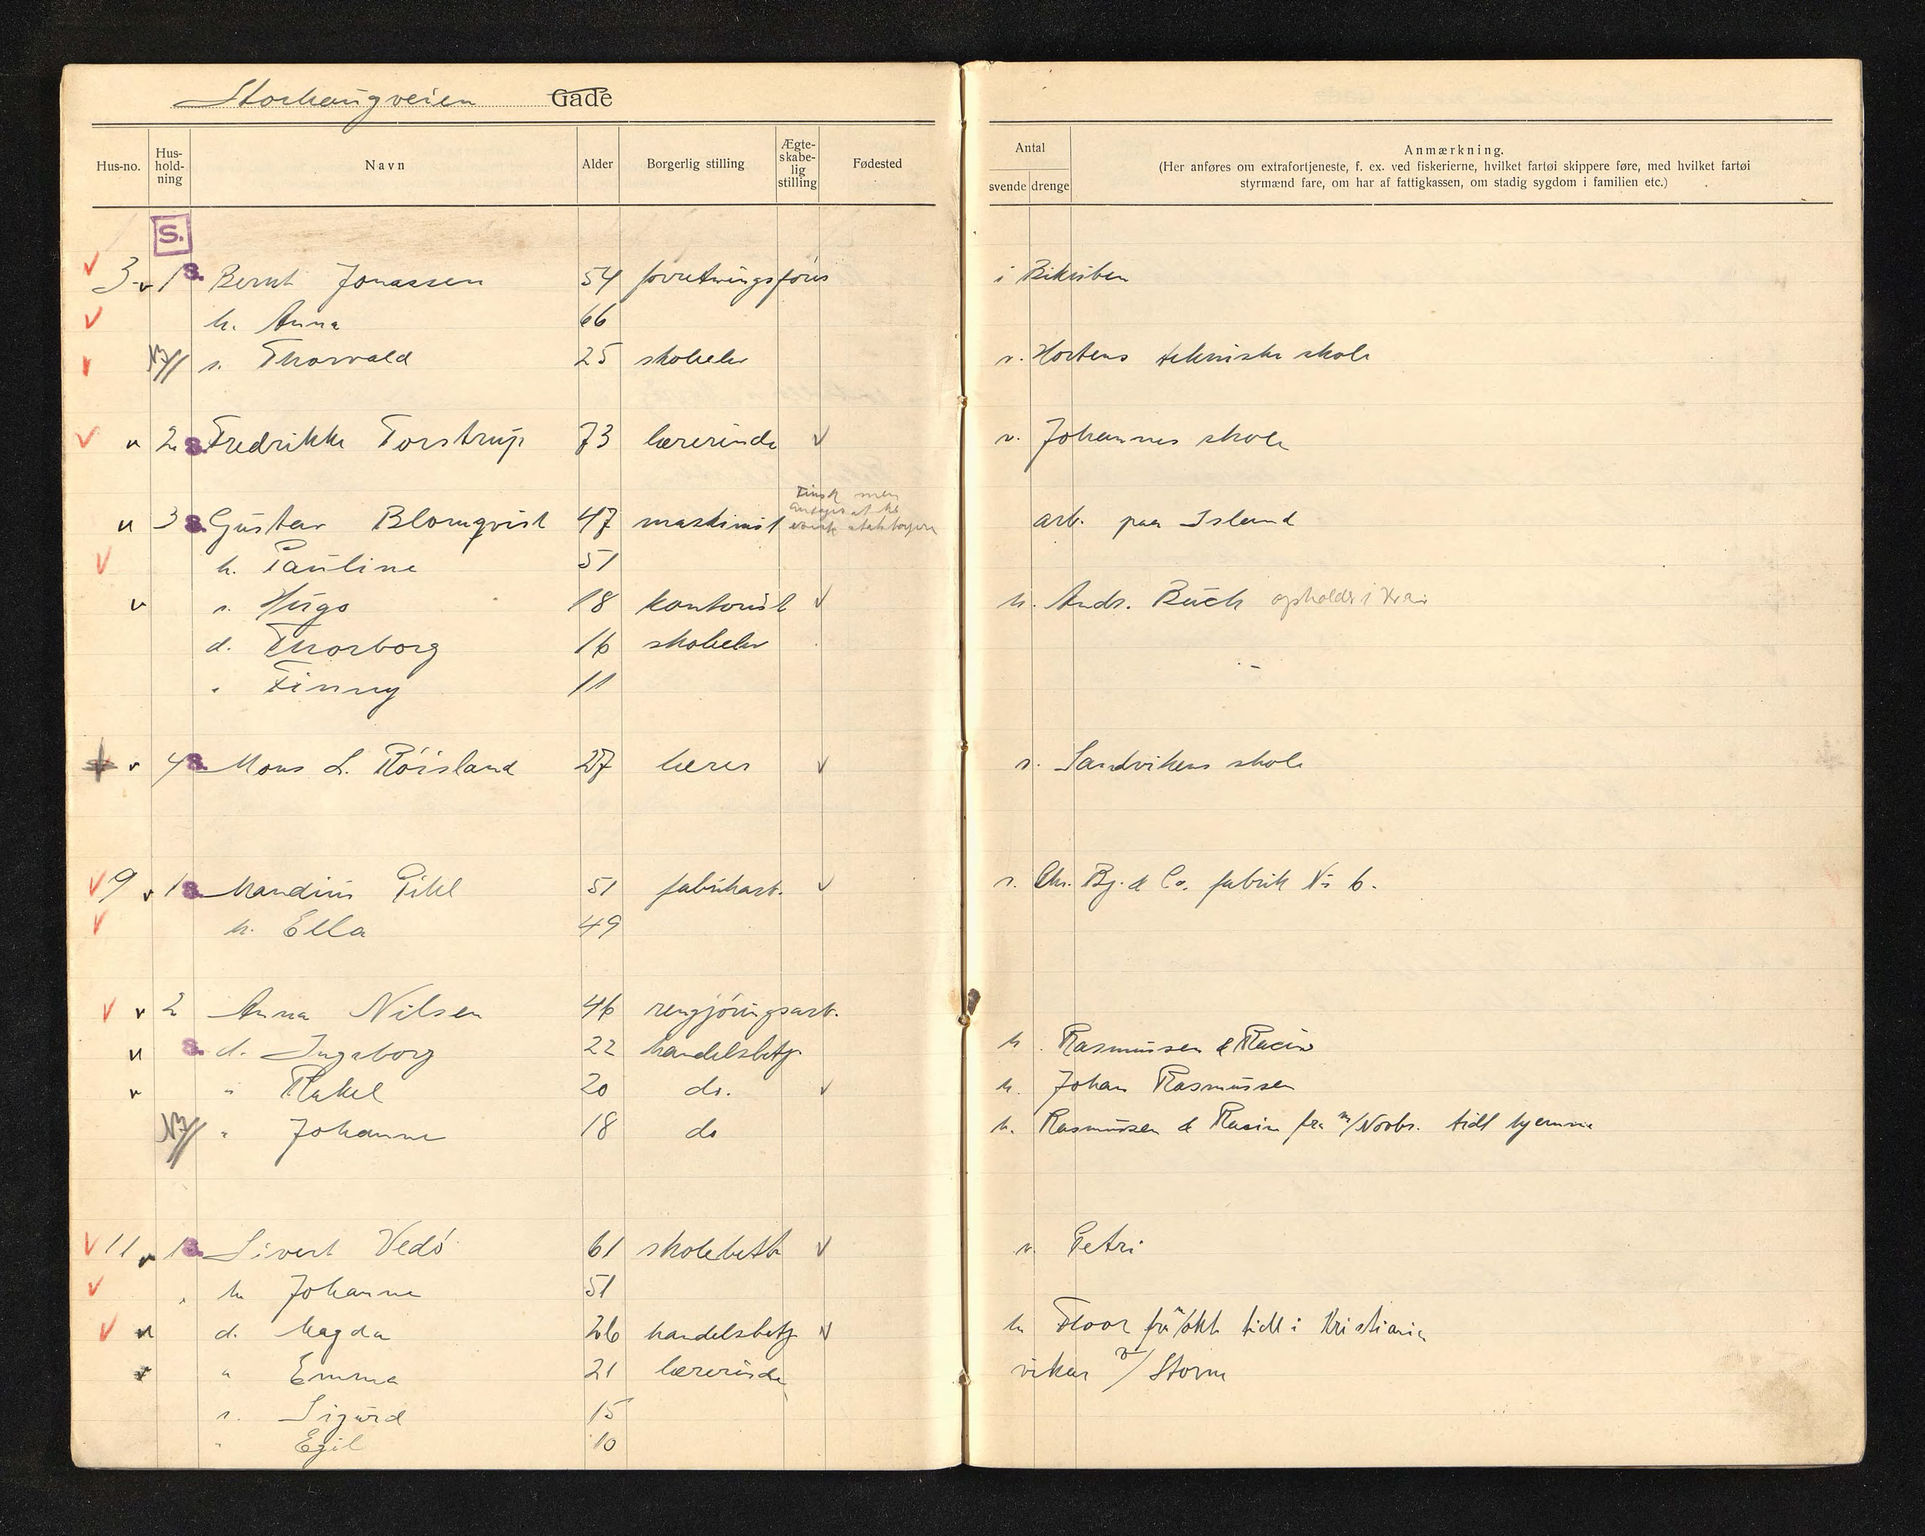 Storhaugveien Gade
Hus-no. Hus-hold-ning Navn Alder Borgerlig stilling Ægte-skabe-lig stilling Fødested Antal svende drenge Anmærkning.
(Her anføres om extrafortjeneste, f. ex. ved fiskerierne, hvilket fartøi skippere føre, med hvilket fartøi
styrmænd fare, om har af fattigkassen, om stadig sygdom i familien etc.)
S.
3 1 S. Bernt Jonassen 54 forretningsfører i Bikuben
h. Anna 66
s. Thorvald 25 skoleelev v. Hortens tekniske skole
2 S. Fredrikke Torstrup 73 lærerinde v. Johannes skole
Finsk men
antages at ha
norsk statsborger
3 S. Gustav Blomqvist 47 maskinist arb. paa Island
h. Pauline 51
s. Hugo 18 kontorist h. Andr. Buch opholder i
d. Thorborg 16 skoleelev
" Finny 11
4 S. Mons L. Röisland 27 lærer v. Sandvikens skole
9 1 S. Mandius Pihl 51 fabrikarb. v. Chr. Bj. & Co. fabrik No 6.
h. Ella 49
2 Anna Nilsen 46 rengjöringsarb.
S. d. Ingeborg 22 handelsbetj h. Rasmussen & Racin
" Rakel 20 do. h. Johan Rasmussen
" Johanne 18 do h. Rasmussen & Racin fra /Novbr. tidl hjemme
11 1 S. Sivert Vedö 61 skolebetj v. Petri
h Johanne 51
d. Magda 26 handelsbetj h Floor fra /okt tidl i Kristiania
" Emma 21 lærerinde vikar v/ Storm
s. Sigurd 15
" Egil 10